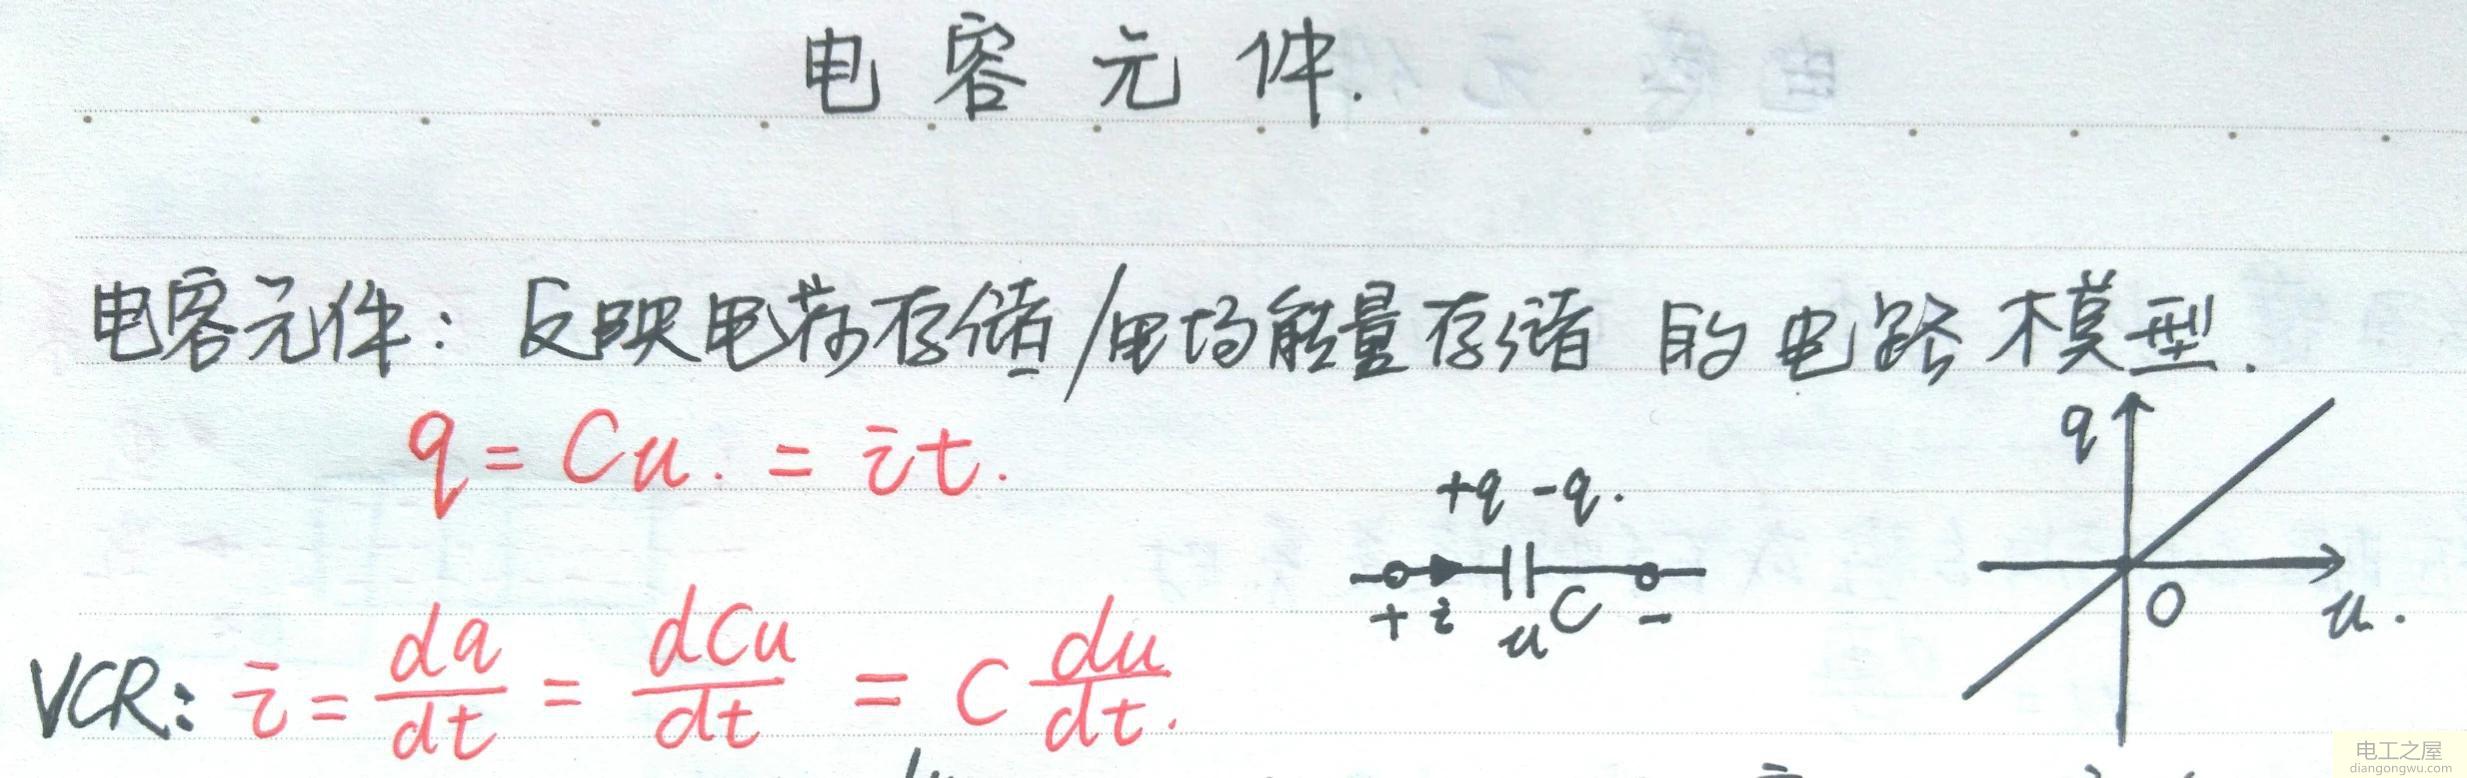 电容元件.
电容元件: 反映电荷存储/电场能量存储 的电路模型.
q = Cu. = it.
+q -q.
+ i u C -
q
O
u.
VCR: i = dq/dt = dCu/dt = C du/dt.
电工之屋
diangongwu.com